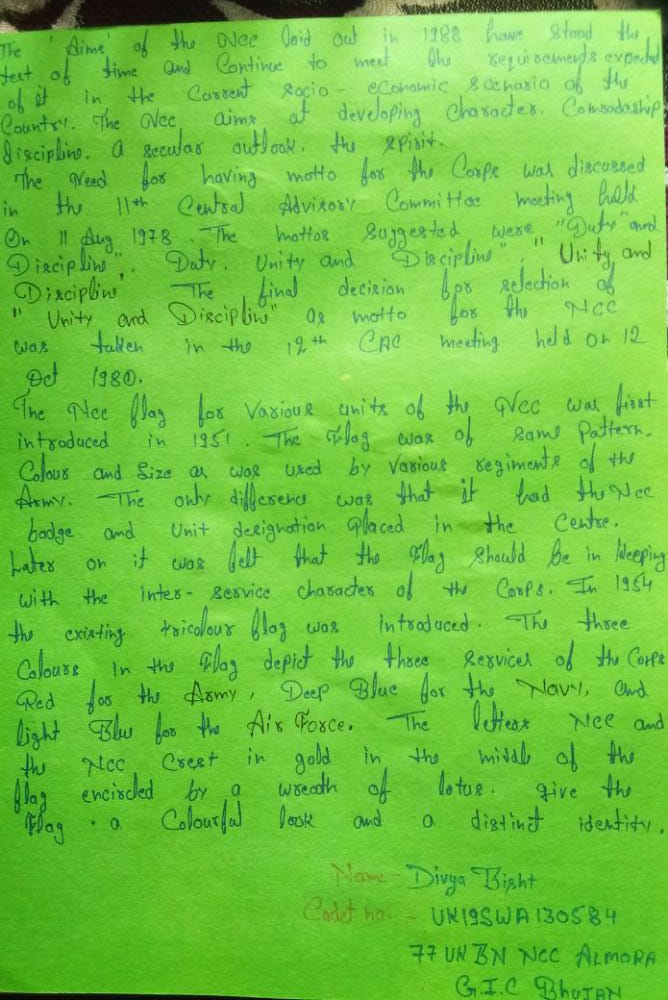 The 'Aims' of the NCC laid out in 1988 have stood the
test of time and Continue to meet the requirements expected
of it in the Current socio-economic scenario of the
Country. The NCC aims at developing character. Comradeship
discipline. A secular outlook. the spirit.
The Need for having motto for the Corps was discussed
in the 11th Central Advisory Committee meeting held
On 11 Aug 1978. The mottos suggested were "Duty "and
Discipline". Duty. Unity and Discipline". "Unity and
Discipline". The final decision for selection of
"Unity and Discipline" as motto for the NCC
was taken in the 12th CAC meeting held on 12
Oct 1980.
The NCC flag for Various units of the NCC was first
introduced in 1951. The Flag was of same Pattern.
Colour and Size as was used by Various regiments of the
Army. The only difference was that it had the NCC
badge and Unit designation Placed in the Centre.
Later on it was felt that the Flag should be in Keeping
with the inter-service character of the Corps. In 1954
the existing tricolour flag was introduced. The three
Colours in the Flag depict the three services of the Corps
Red for the Army, Deep Blue for the Navy, and
light Blue for the Air Force. The letters NCC and
the NCC Crest in gold in the middle of the
flag encircled by a wreath of lotus. give the
Flag a Colourful look and a distinct identity.
Name - Divya Bisht
Cadet no. - UK19SWA130584
77 UK BN NCC ALMORA
G.I.C BHUJAN